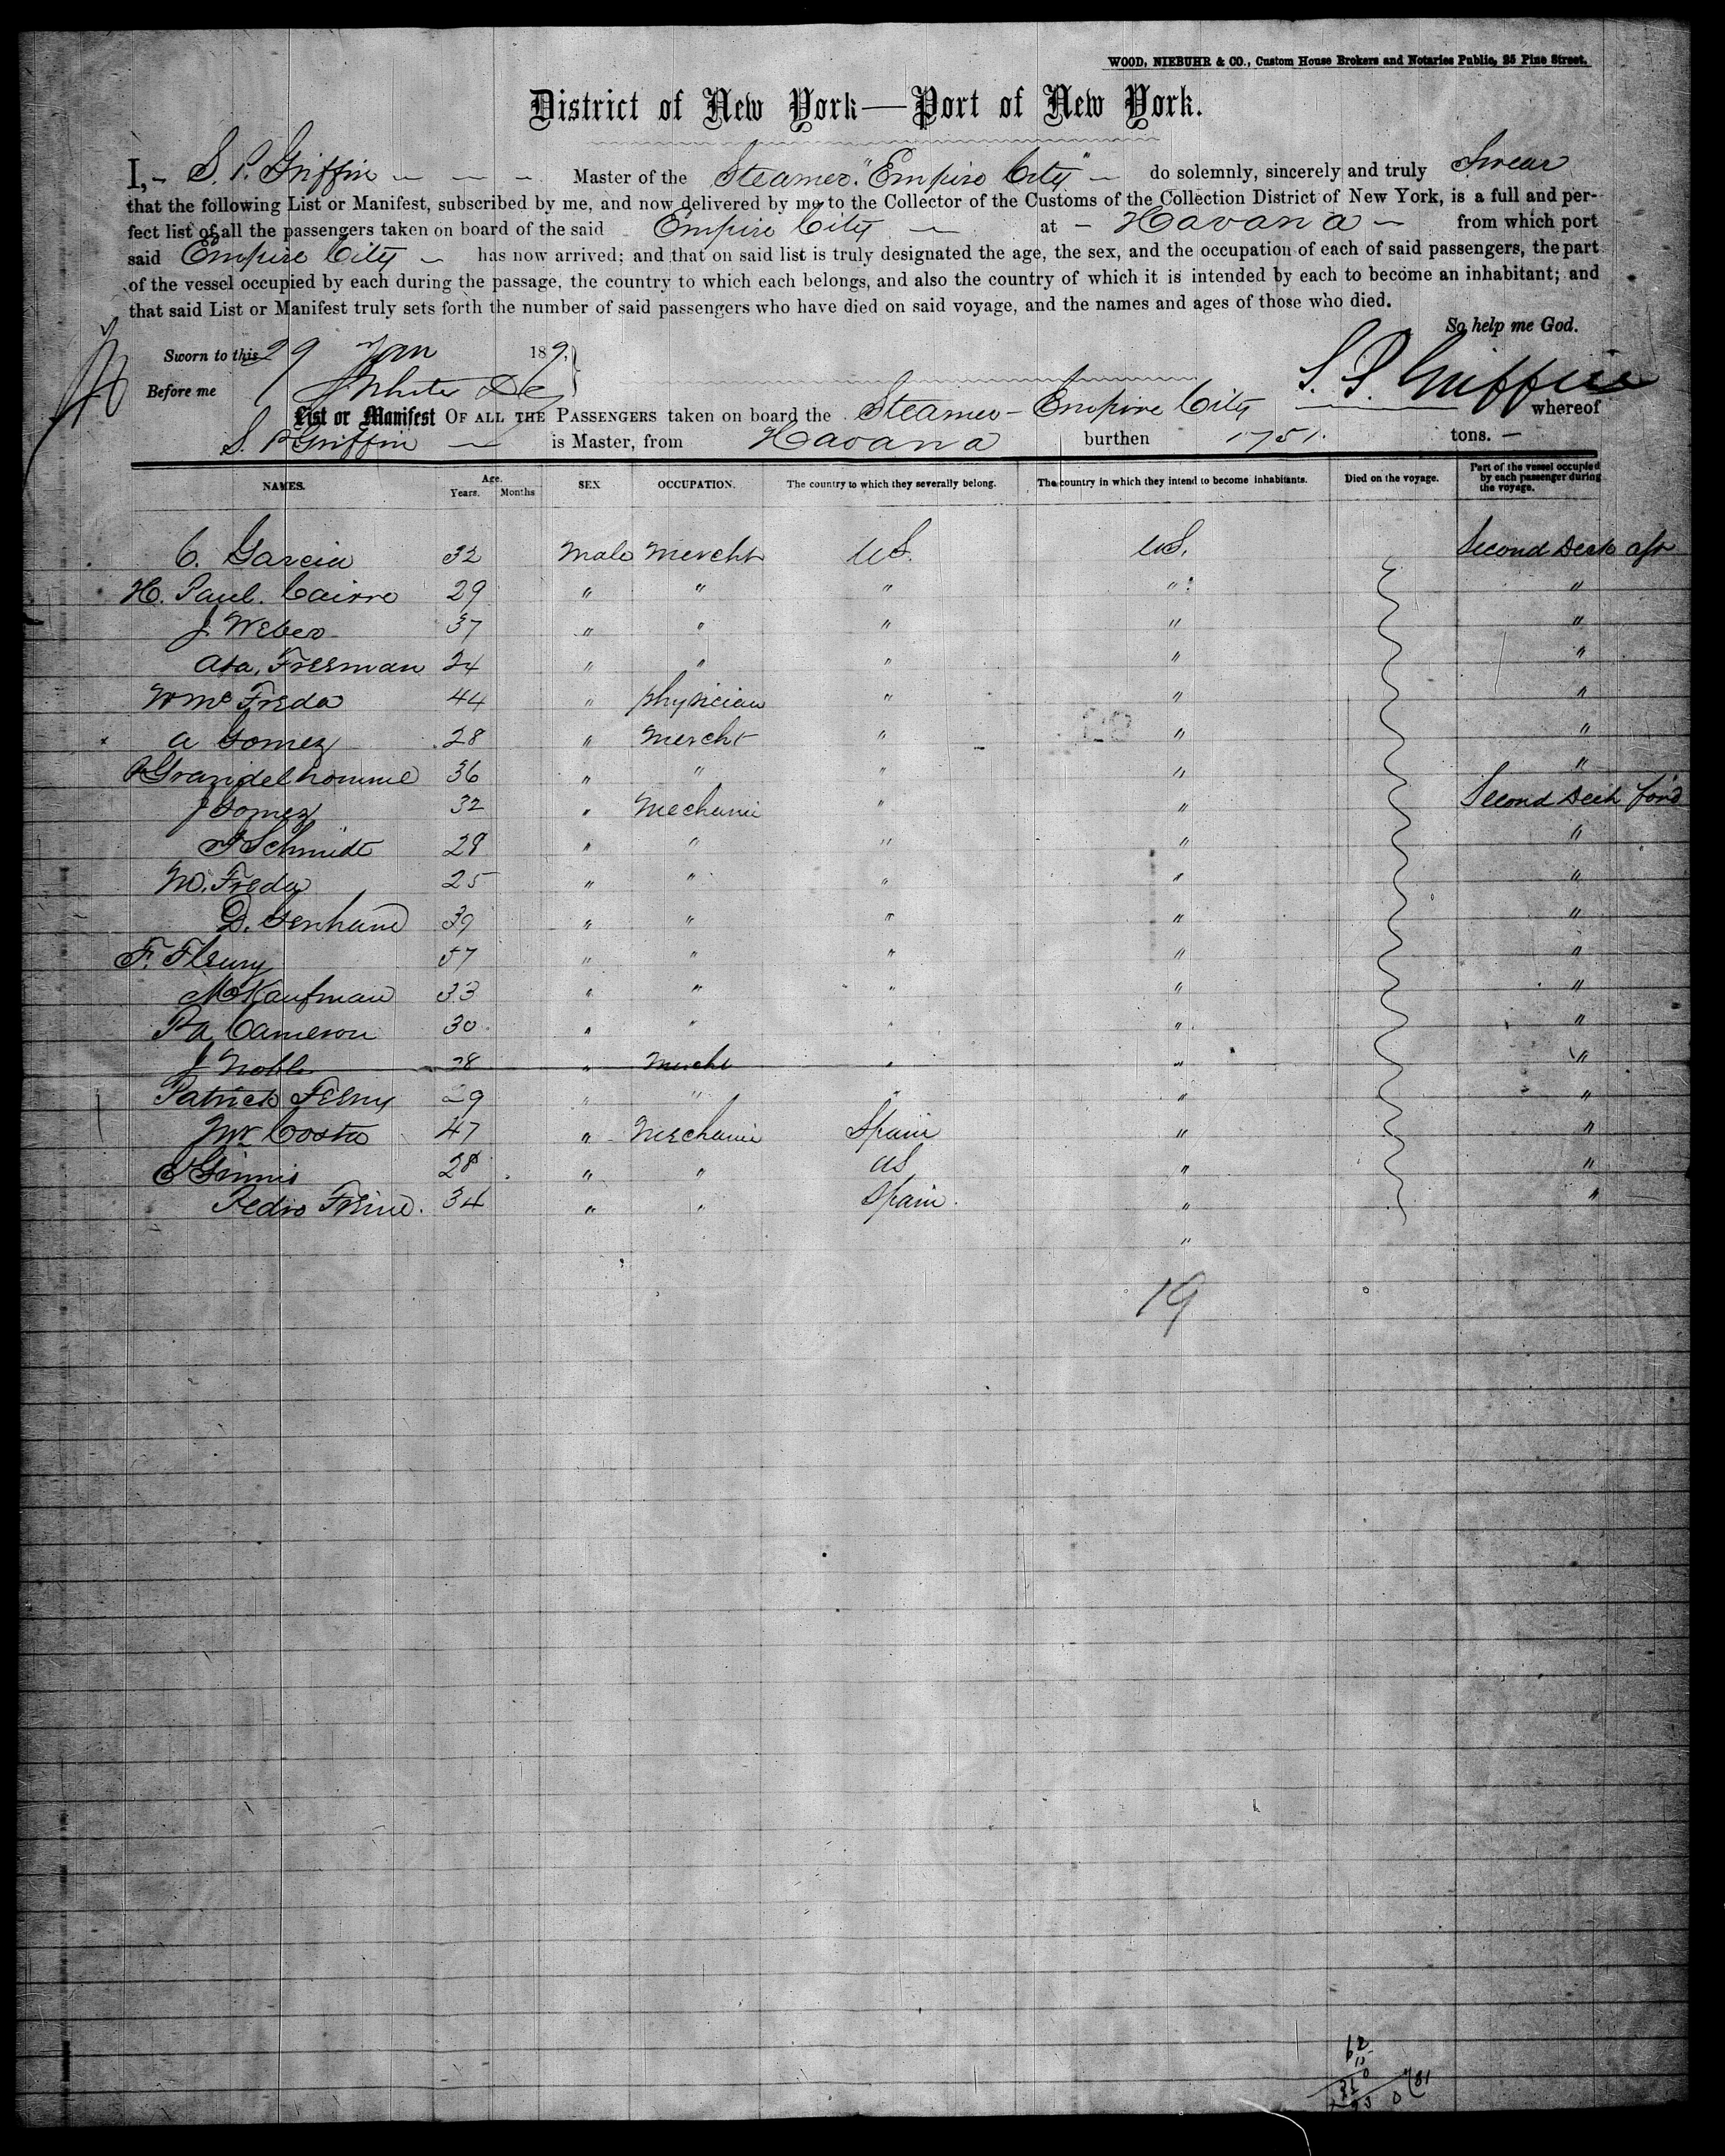 WOOD, NIEBUHR & CO., Custom House Brokers and Notaries Public, 25 Pine Street.
District of New York—Port of New York.
I, S. P. Griffin Master of the Steamer "Empire City" do solemnly, sincerely and truly Swear
that the following List or Manifest, subscribed by me, and now delivered by me to the Collector of the Customs of the Collection District of New York, is a full and per-
fect list of all the passengers taken on board of the said Empire City at Havana from which port
said Empire City has now arrived; and that on said list is truly designated the age, the sex, and the occupation of each of said passengers, the part
of the vessel occupied by each during the passage, the country to which each belongs, and also the country of which it is intended by each to become an inhabitant; and
that said List or Manifest truly sets forth the number of said passengers who have died on said voyage, and the names and ages of those who died.
So help me God.
Sworn to this 29 Jan 189
Before me White
S. P. Griffin
List or Manifest OF ALL THE PASSENGERS taken on board the Steamer - Empire City whereof
S. P. Griffin is Master, from Havana burthen 1751 tons.
NAMES. Age. Years. Months SEX OCCUPATION. The country to which they severally belong. The country in which they intend to become inhabitants. Died on the voyage. Part of the vessel occupied by each passenger during the voyage.
C. Garcia 32 Male Mercht US. US. Second Deck aft
H. Paul. Cairre 29 " " " " "
J Weber 37 " " " " "
Asa, Freeman 24 " " " " "
Wm Freda 44 " physician " " "
a Gomez 28 " Mercht " " "
P Grandelhomme 36 " " " " "
J Gomez 32 " Mechanic " " Second Deck for'd
J Schmidt 28 " " " " "
Freda 25 " " " " "
D. 39 " " " " "
F. Fleury 57 " " " " "
M Kaufman 33 " " " " "
Pa Cameron 30 " " " " "
J Noble 28 " Mercht " " "
Patrick 29 " " " " "
Costa 47 " Mechanic Spain " "
Ginnis 28 " " US " "
Pedro 34 " " Spain. " "
"
19